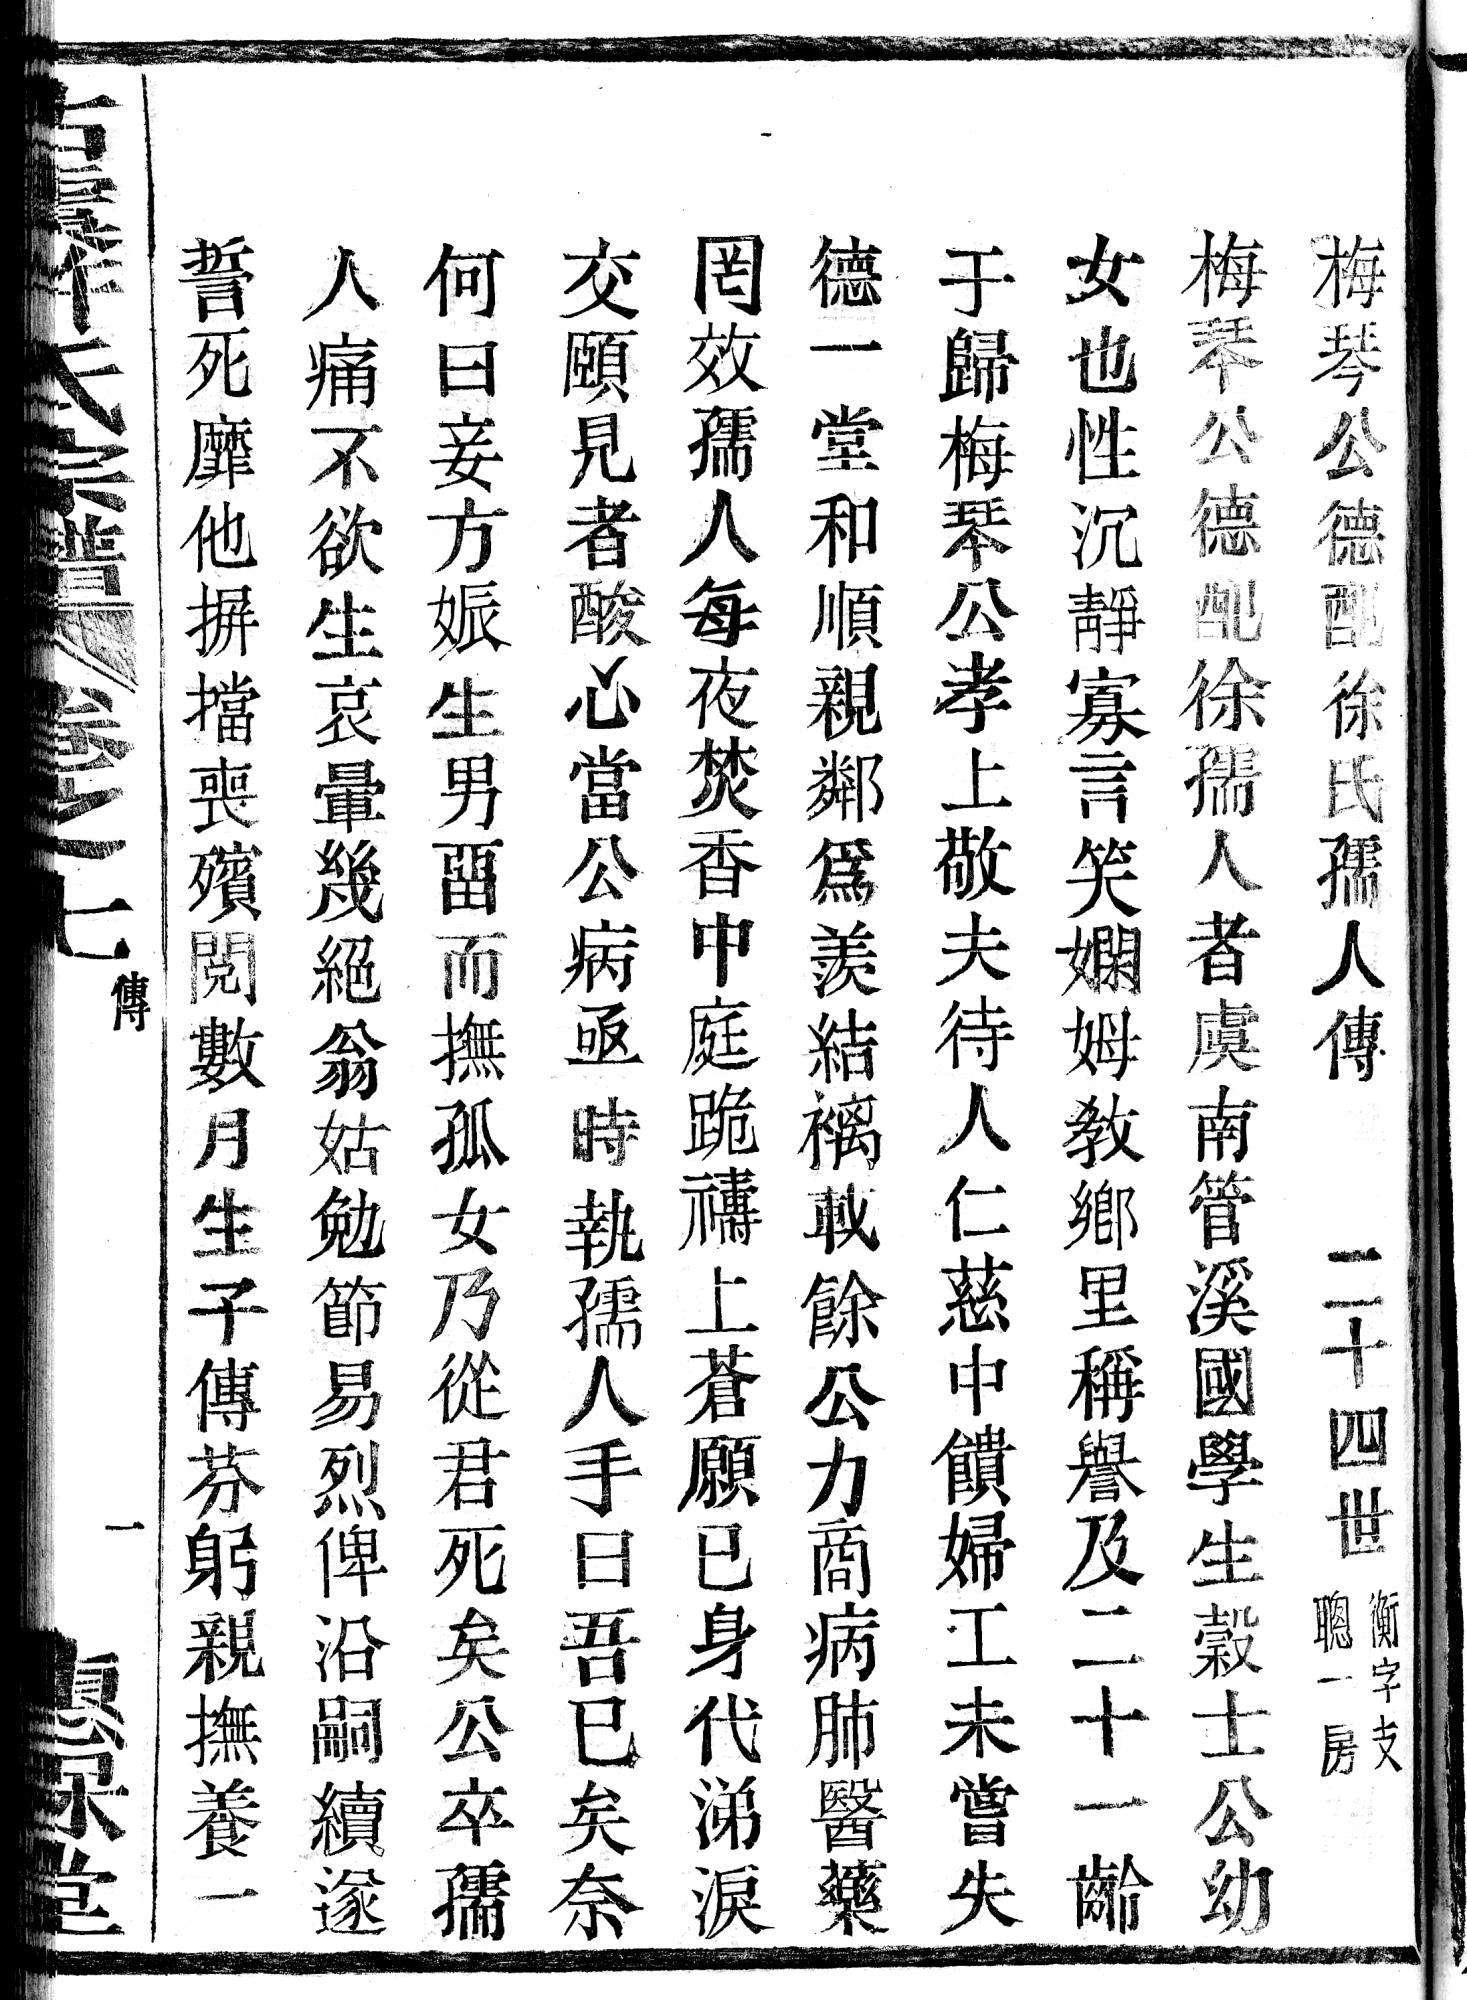 梅琴公德配徐氏孺人傳　二十四世衡字支聰一房
梅琴公德配徐孺人者虞南管溪國學生穀士公幼
女也性沉靜寡言笑嫻姆教鄉里稱譽及二十一齡
于歸梅琴公孝上敬夫待人仁慈中饋婦工未嘗失
德一堂和順親鄰爲羨結褵載餘公力商病肺醫藥
罔效孺人每夜焚香中庭跪禱上蒼願已身代涕淚
交頤見者酸心當公病亟時執孺人手曰吾已矣奈
何曰妾方娠生男畱而撫孤女乃從君死矣公卒孺
人痛不欲生哀暈幾絕翁姑勉節易烈俾沿嗣續遂
誓死靡他摒擋喪殯閱數月生子傳芬躬親撫養一
氏宗譜　卷之七　傳　一　惠保堂